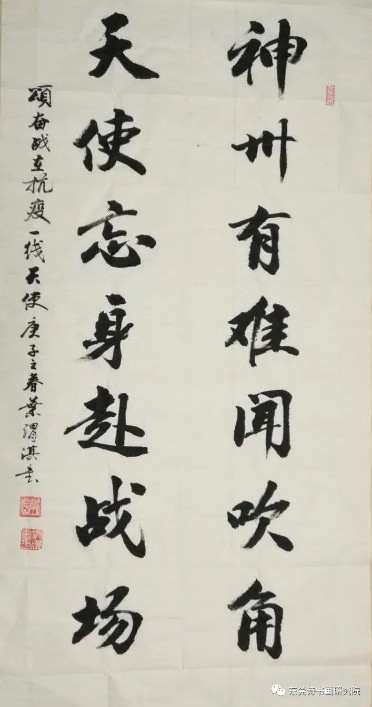 神州有难闻吹角
天使忘身赴战场
颂奋战在抗疫一线天使 庚子之春 叶渭淇书
东莞黄书画研究院